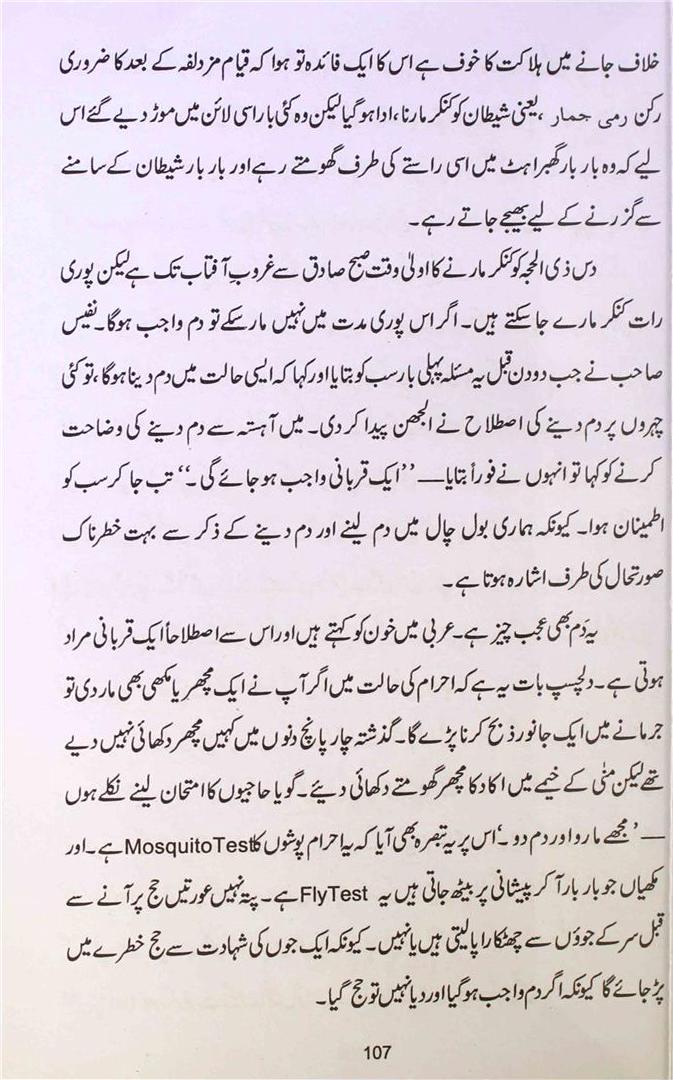 خلاف جانے میں ہلاکت کا خوف ہے اس کا ایک فائدہ تو ہوا کہ قیام مزدلفہ کے بعد کا ضروری
رکن رمی جمار ، یعنی شیطان کو کنکر مارنا، ادا ہو گیا لیکن وہ کئی بار اسی لائن میں موڑ دیے گئے اس
لیے کہ وہ بار بار گھبراہٹ میں اسی راستے کی طرف گھومتے رہے اور بار بار شیطان کے سامنے
سے گزرنے کے لیے بھیجے جاتے رہے۔
دس ذی الحجہ کو کنکر مارنے کا اولیٰ وقت صبح صادق سے غروبِ آفتاب تک ہے لیکن پوری
رات کنکر مارے جا سکتے ہیں۔ اگر اس پوری مدت میں نہیں مار سکے تو دم واجب ہوگا۔ نفیس
صاحب نے جب دو دن قبل یہ مسئلہ پہلی بار سب کو بتایا اور کہا کہ ایسی حالت میں دم دینا ہوگا، تو کئی
چہروں پر دم دینے کی اصطلاح نے الجھن پیدا کر دی۔ میں آہستہ سے دم دینے کی وضاحت
کرنے کو کہا تو انہوں نے فوراً بتایا— ’’ایک قربانی واجب ہو جائے گی۔‘‘ تب جا کر سب کو
اطمینان ہوا۔ کیونکہ ہماری بول چال میں دم لینے اور دم دینے کے ذکر سے بہت خطرناک
صورتحال کی طرف اشارہ ہوتا ہے۔
یہ دَم بھی عجب چیز ہے۔ عربی میں خون کو کہتے ہیں اور اس سے اصطلاحاً ایک قربانی مراد
ہوتی ہے۔ دلچسپ بات یہ ہے کہ احرام کی حالت میں اگر آپ نے ایک مچھر یا مکھی بھی مار دی تو
جرمانے میں ایک جانور ذبح کرنا پڑے گا۔ گذشتہ چار پانچ دنوں میں کہیں مچھر دکھائی نہیں دیے
تھے لیکن منٰی کے خیمے میں اکا دکا مچھر گھومتے دکھائی دیئے۔ گویا حاجیوں کا امتحان لینے نکلے ہوں
— ’مجھے مارو اور دم دو۔‘ اس پر یہ تبصرہ بھی آیا کہ یہ احرام پوشوں کا MosquitoTest ہے۔ اور
مکھیاں جو بار بار آ کر پیشانی پر بیٹھ جاتی ہیں یہ FlyTest ہے۔ پتہ نہیں عورتیں حج پر آنے سے
قبل سر کے جوؤں سے چھٹکارا پا لیتی ہیں یا نہیں۔ کیونکہ ایک جوں کی شہادت سے حج خطرے میں
پڑ جائے گا کیونکہ اگر دم واجب ہو گیا اور دیا نہیں تو حج گیا۔
107